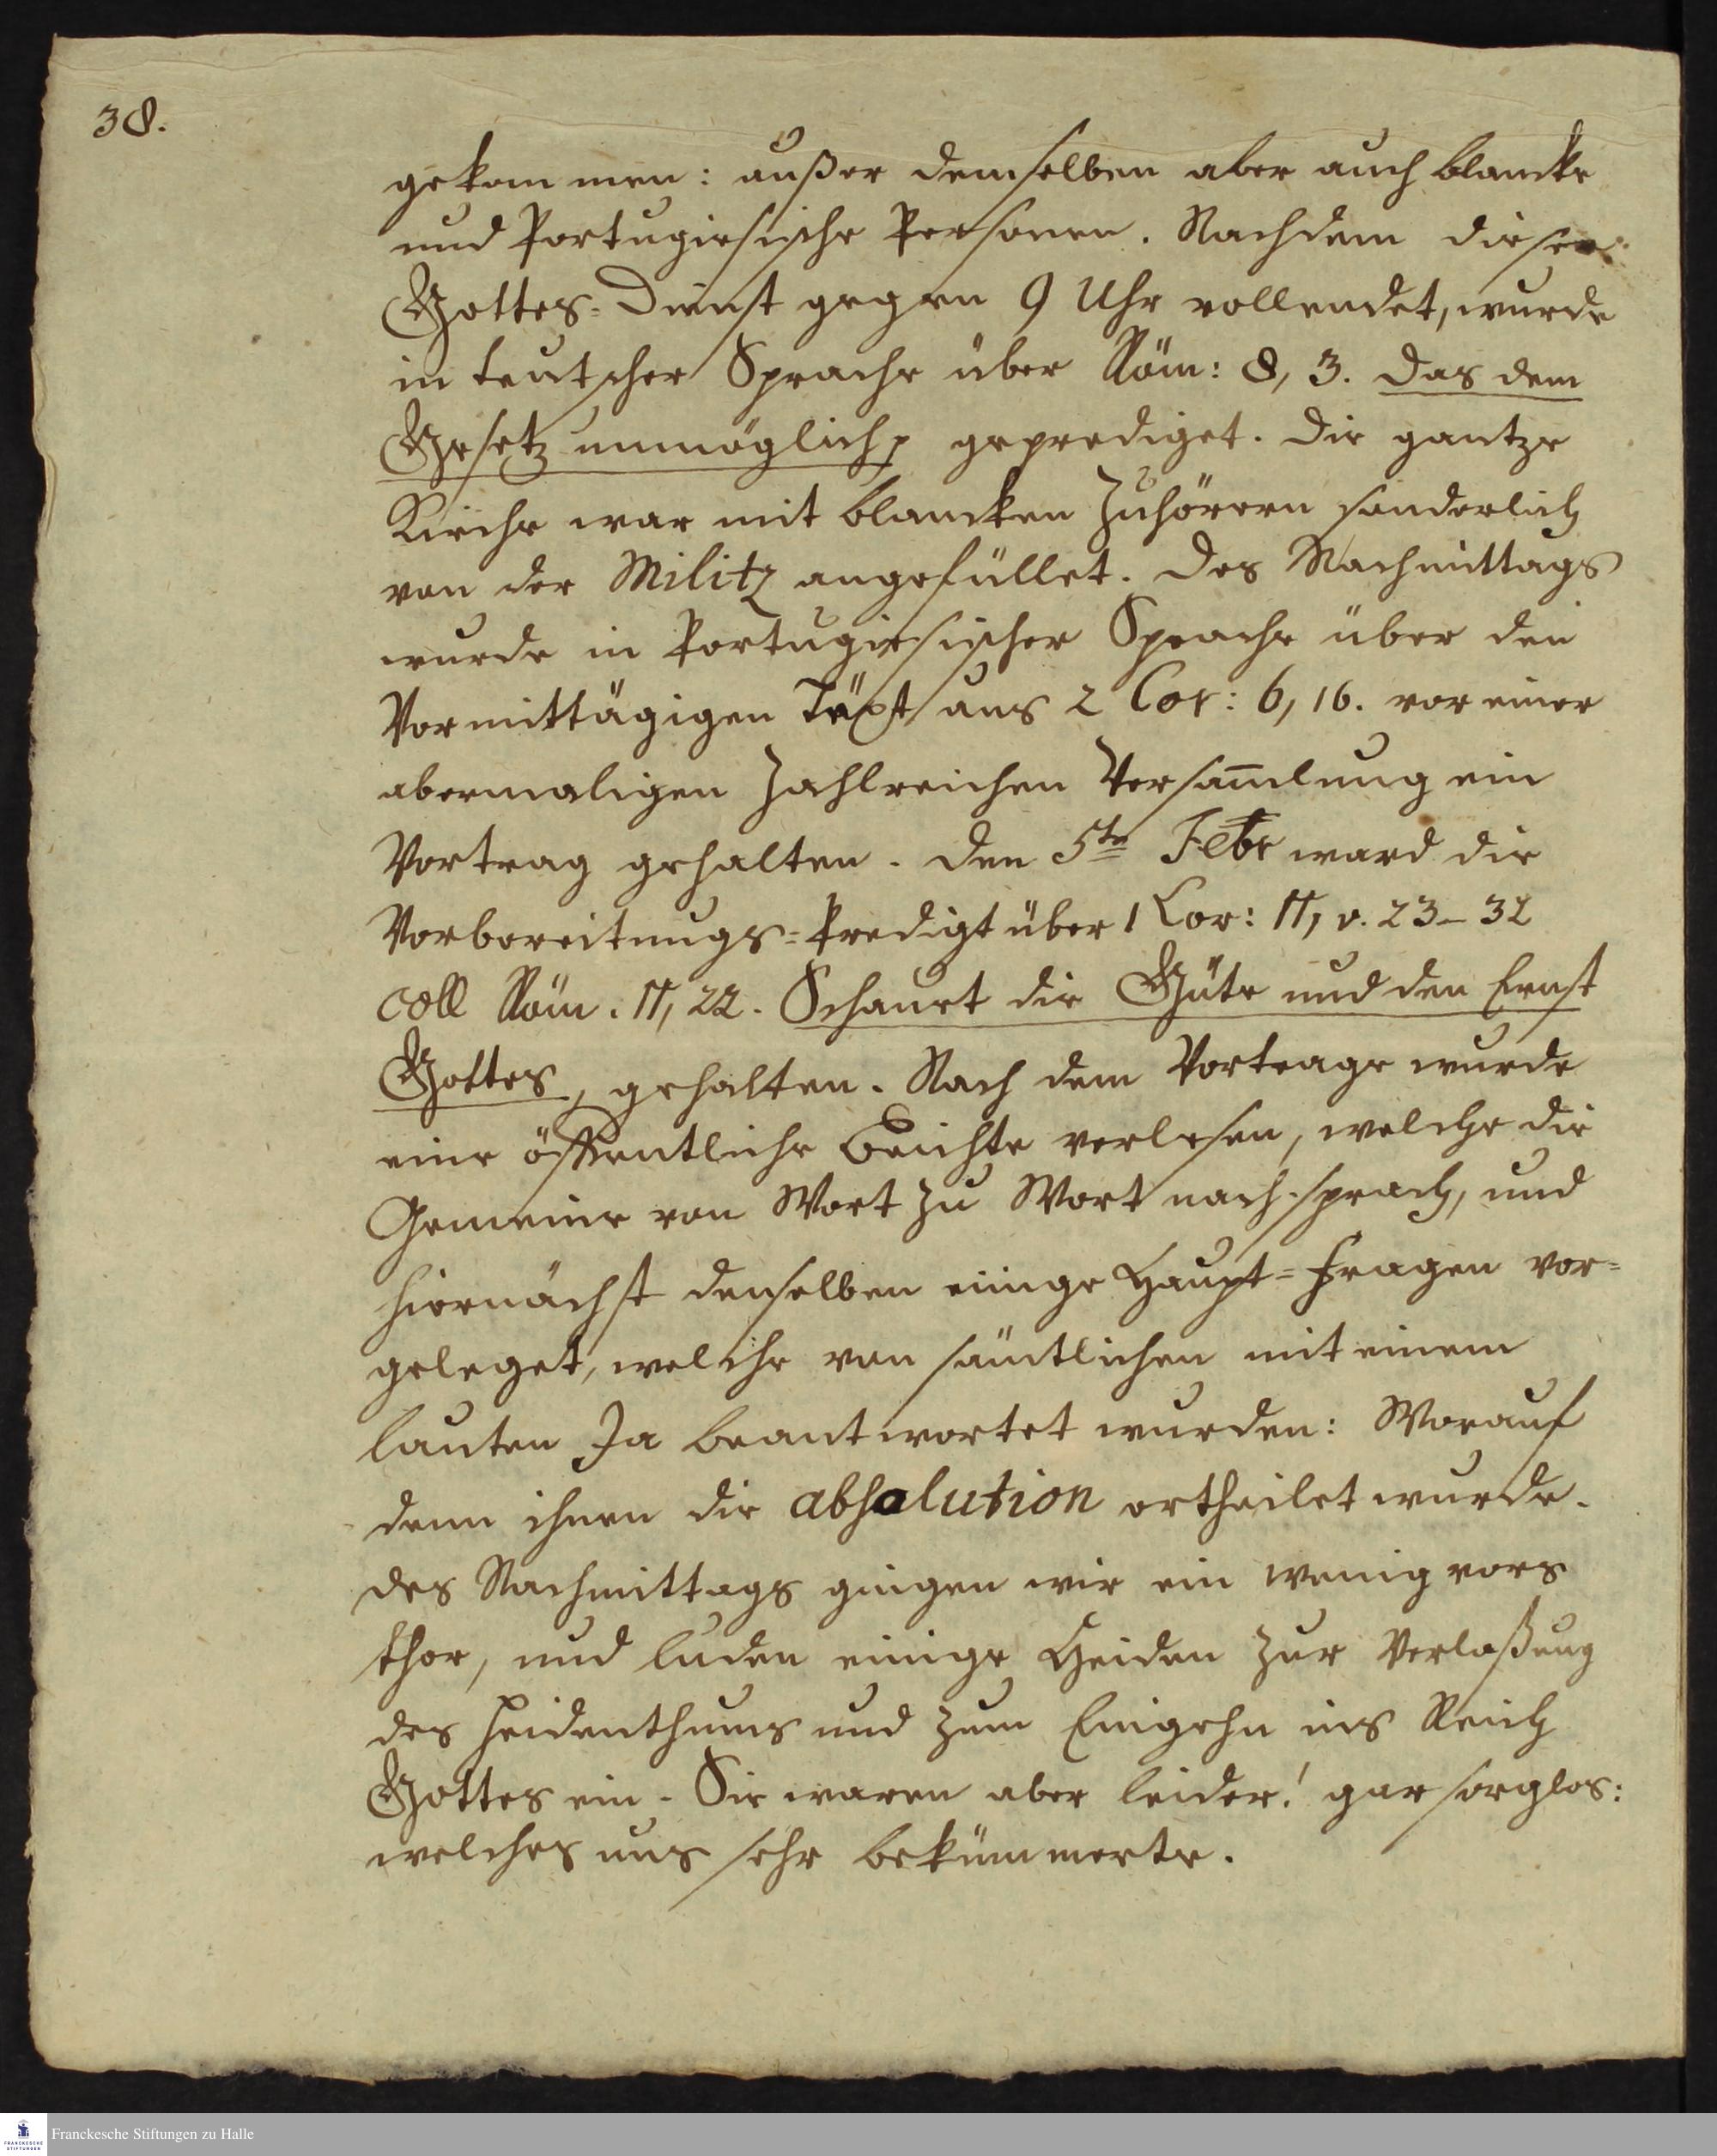 38.
gekommen: außer demselben aber auch blancke
und Portugiesische Personen. Nachdem dieser
Gottes-Dienst gegen 9 Uhr vollendet, wurde
in teutscher Sprache über Röm: 8, 3. Das dem
Gesetz unmöglich geprediget. Die gantze
Kirche war mit blancken Zuhörern sonderlich
von der Militz angefüllet. Des Nachmittags
wurde in Portugiesischer Sprache über den
Vormittägigen Täxt aus 2 Cor: 6, 16. vor einer
abermaligen Zahlreichen Versam̅lung ein
Vortrag gehalten. Den 5te Febr ward die
Vorbereitungs-Predigt über 1 Cor: 11, v. 23-32
coll Röm. 11, 22. Schauet die Güte und den Ernst
Gottes, gehalten. Nach dem Vortrage wurde
eine öffentliche Beichte verlesen, welche die
Gemeine von Wort zu Wort nach sprach, und
hiernächst denselben einige Haupt-Fragen vor-
geleget, welche von sämtlichen mit einem
lauten Ja beantwortet wurden: Worauf
denn ihnen die absolution ertheilet wurde.
Des Nachmittags gingen wir ein wenig vors
Thor, und luden einige Heiden zur Verlaßung
des Heidenthums und zum Eingehn ins Reich
Gottes ein. Sie waren aber leider! gar sorglos:
welches uns sehr bekümmerte.
Franckesche Stiftungen zu Halle
FRANCKESCHE
STIFTUNGEN